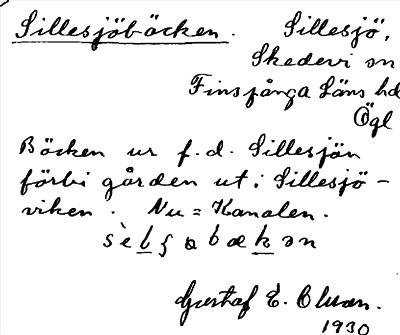 Sillesjöbäcken. Sillesjö,
Skedevi sn
Finspånga Läns hd
Ögl
Bäcken ur f.d. Sillesjön
förbi gården ut i Sillesjö-
viken. Nu = Kanalen.
Gustaf E.
1930